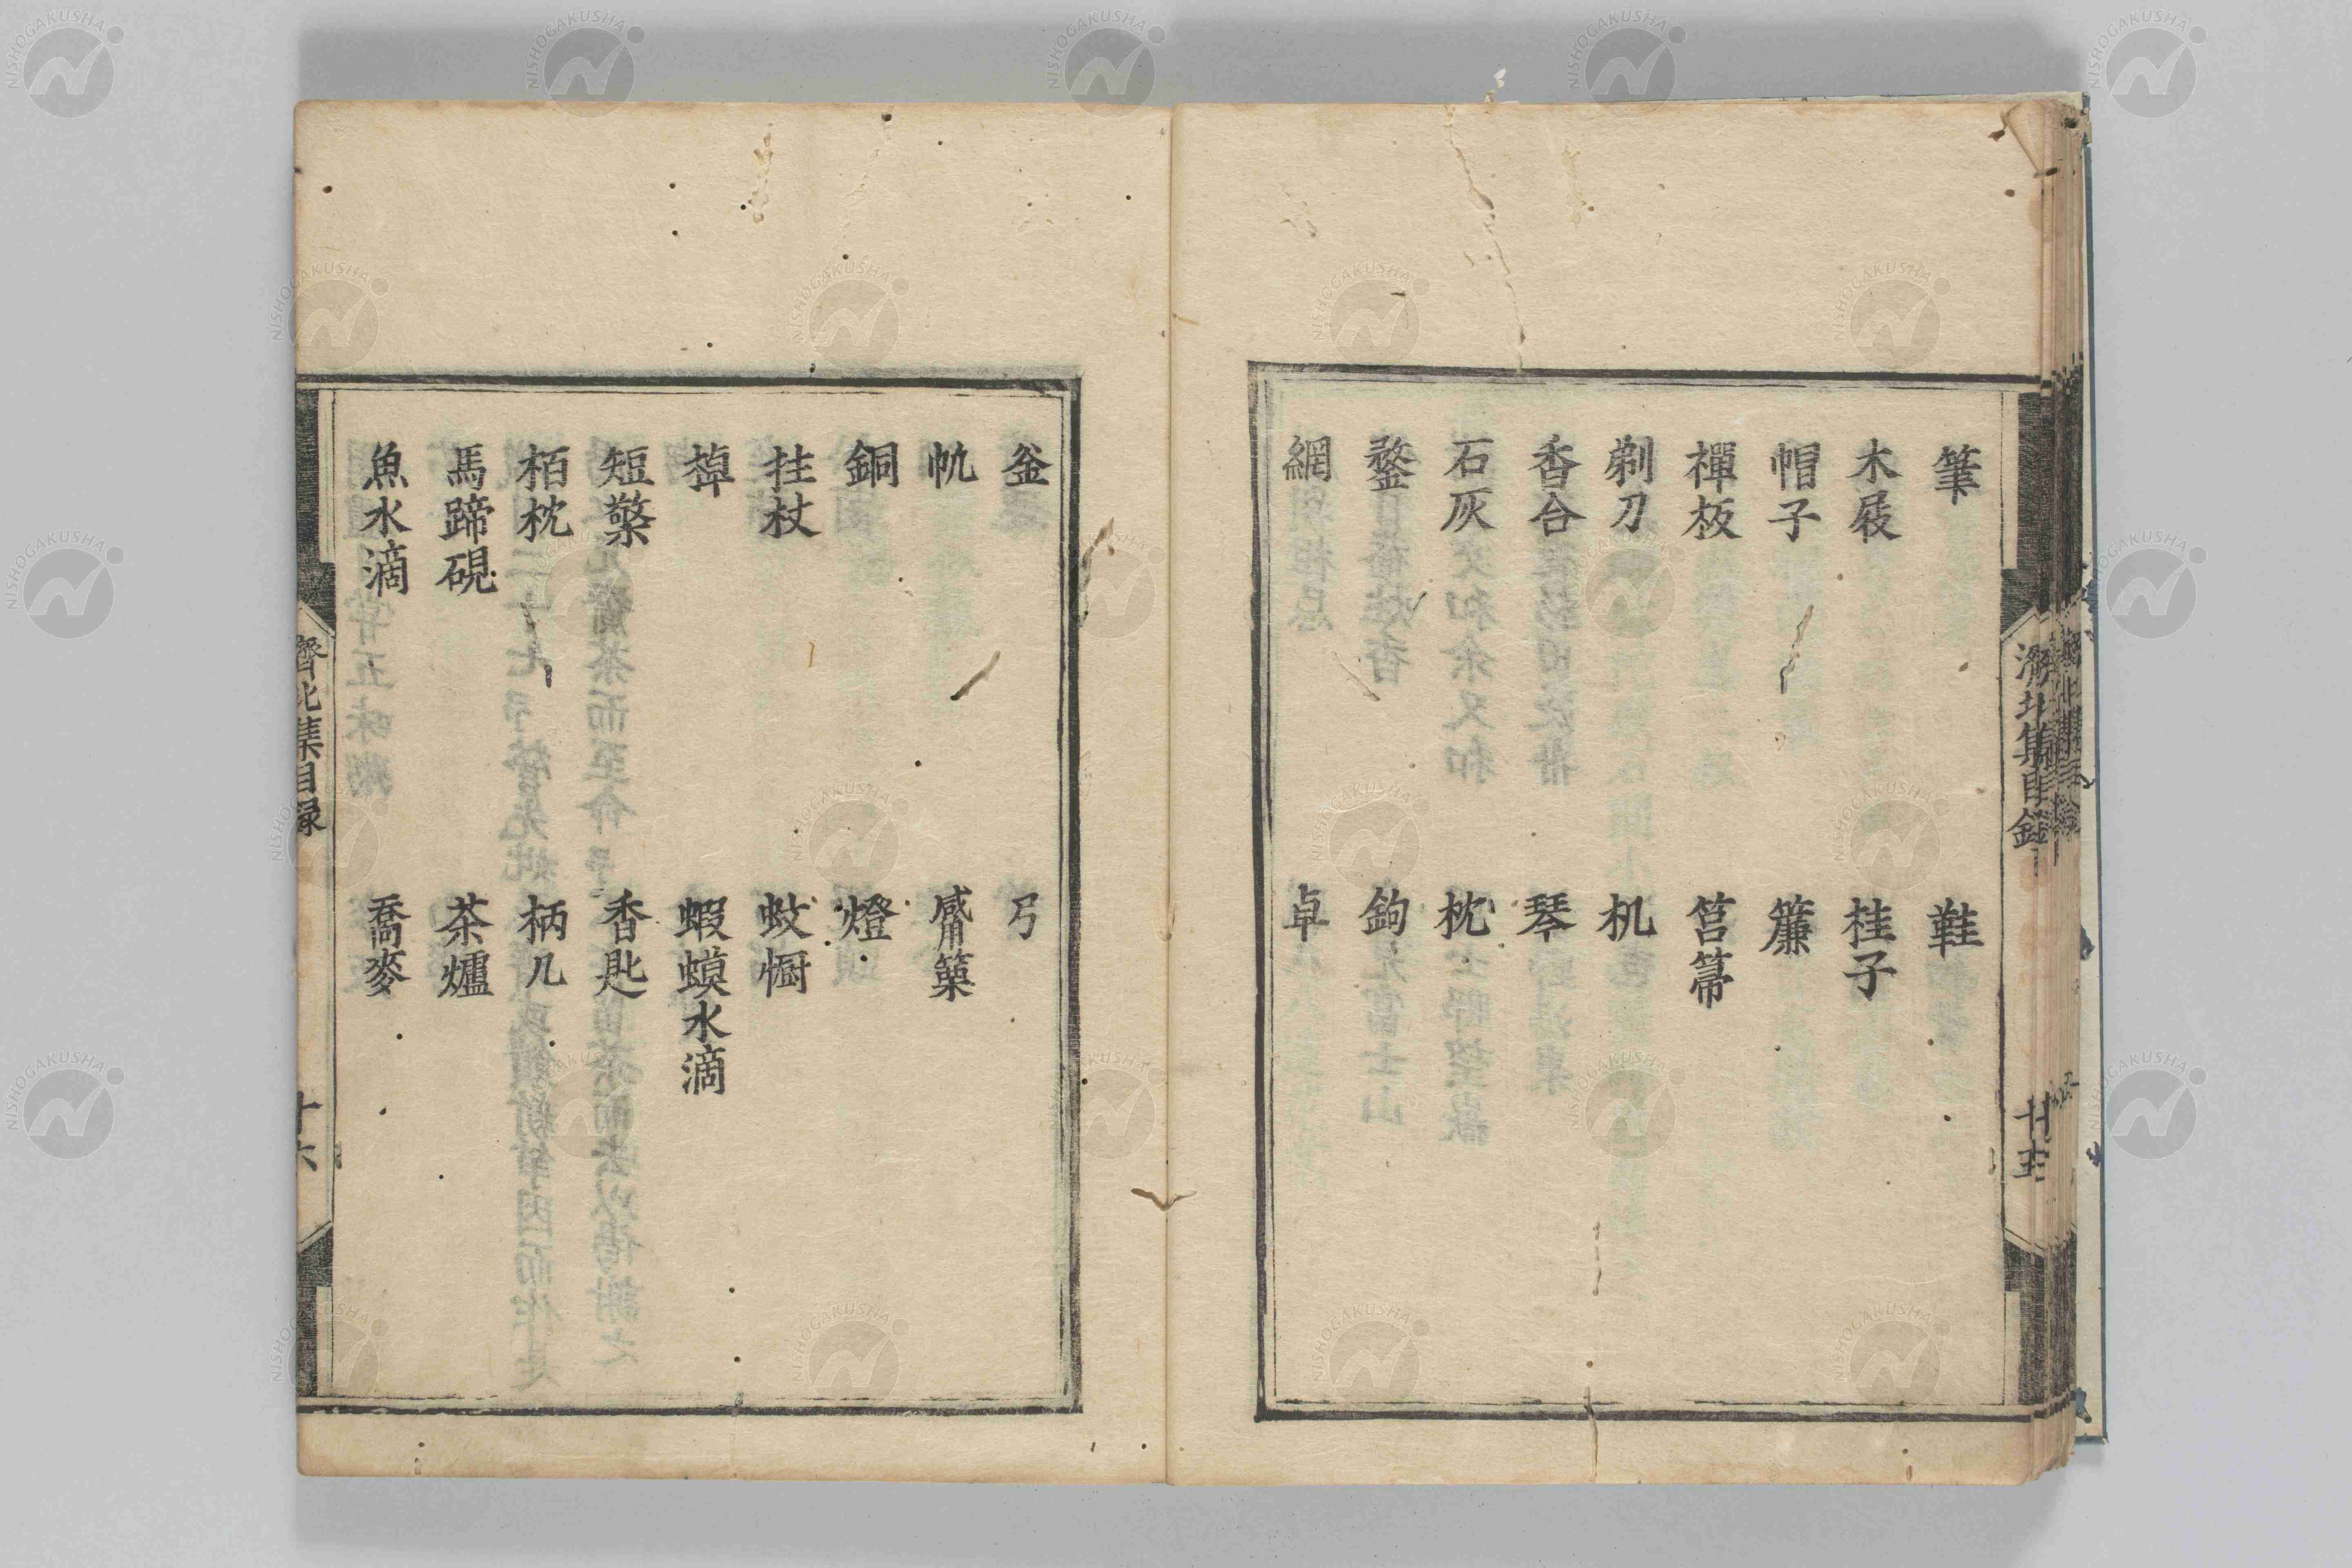 筆 鞋
木屐 桂子
帽子 簾
禪板 筥箒
剃刀 机
香合 琴
石灰 枕
鍪 鉤
網 卓
濟北集目錄 十五
釜 弓
帆 觱篥
銅 燈
拄杖 蚊幮
蝦蟆水滴
短檠 香匙
栢枕 柄几
馬蹄硯 茶爐
魚水滴 喬麥
濟北集目録 十六
NISHOGAKUSHA